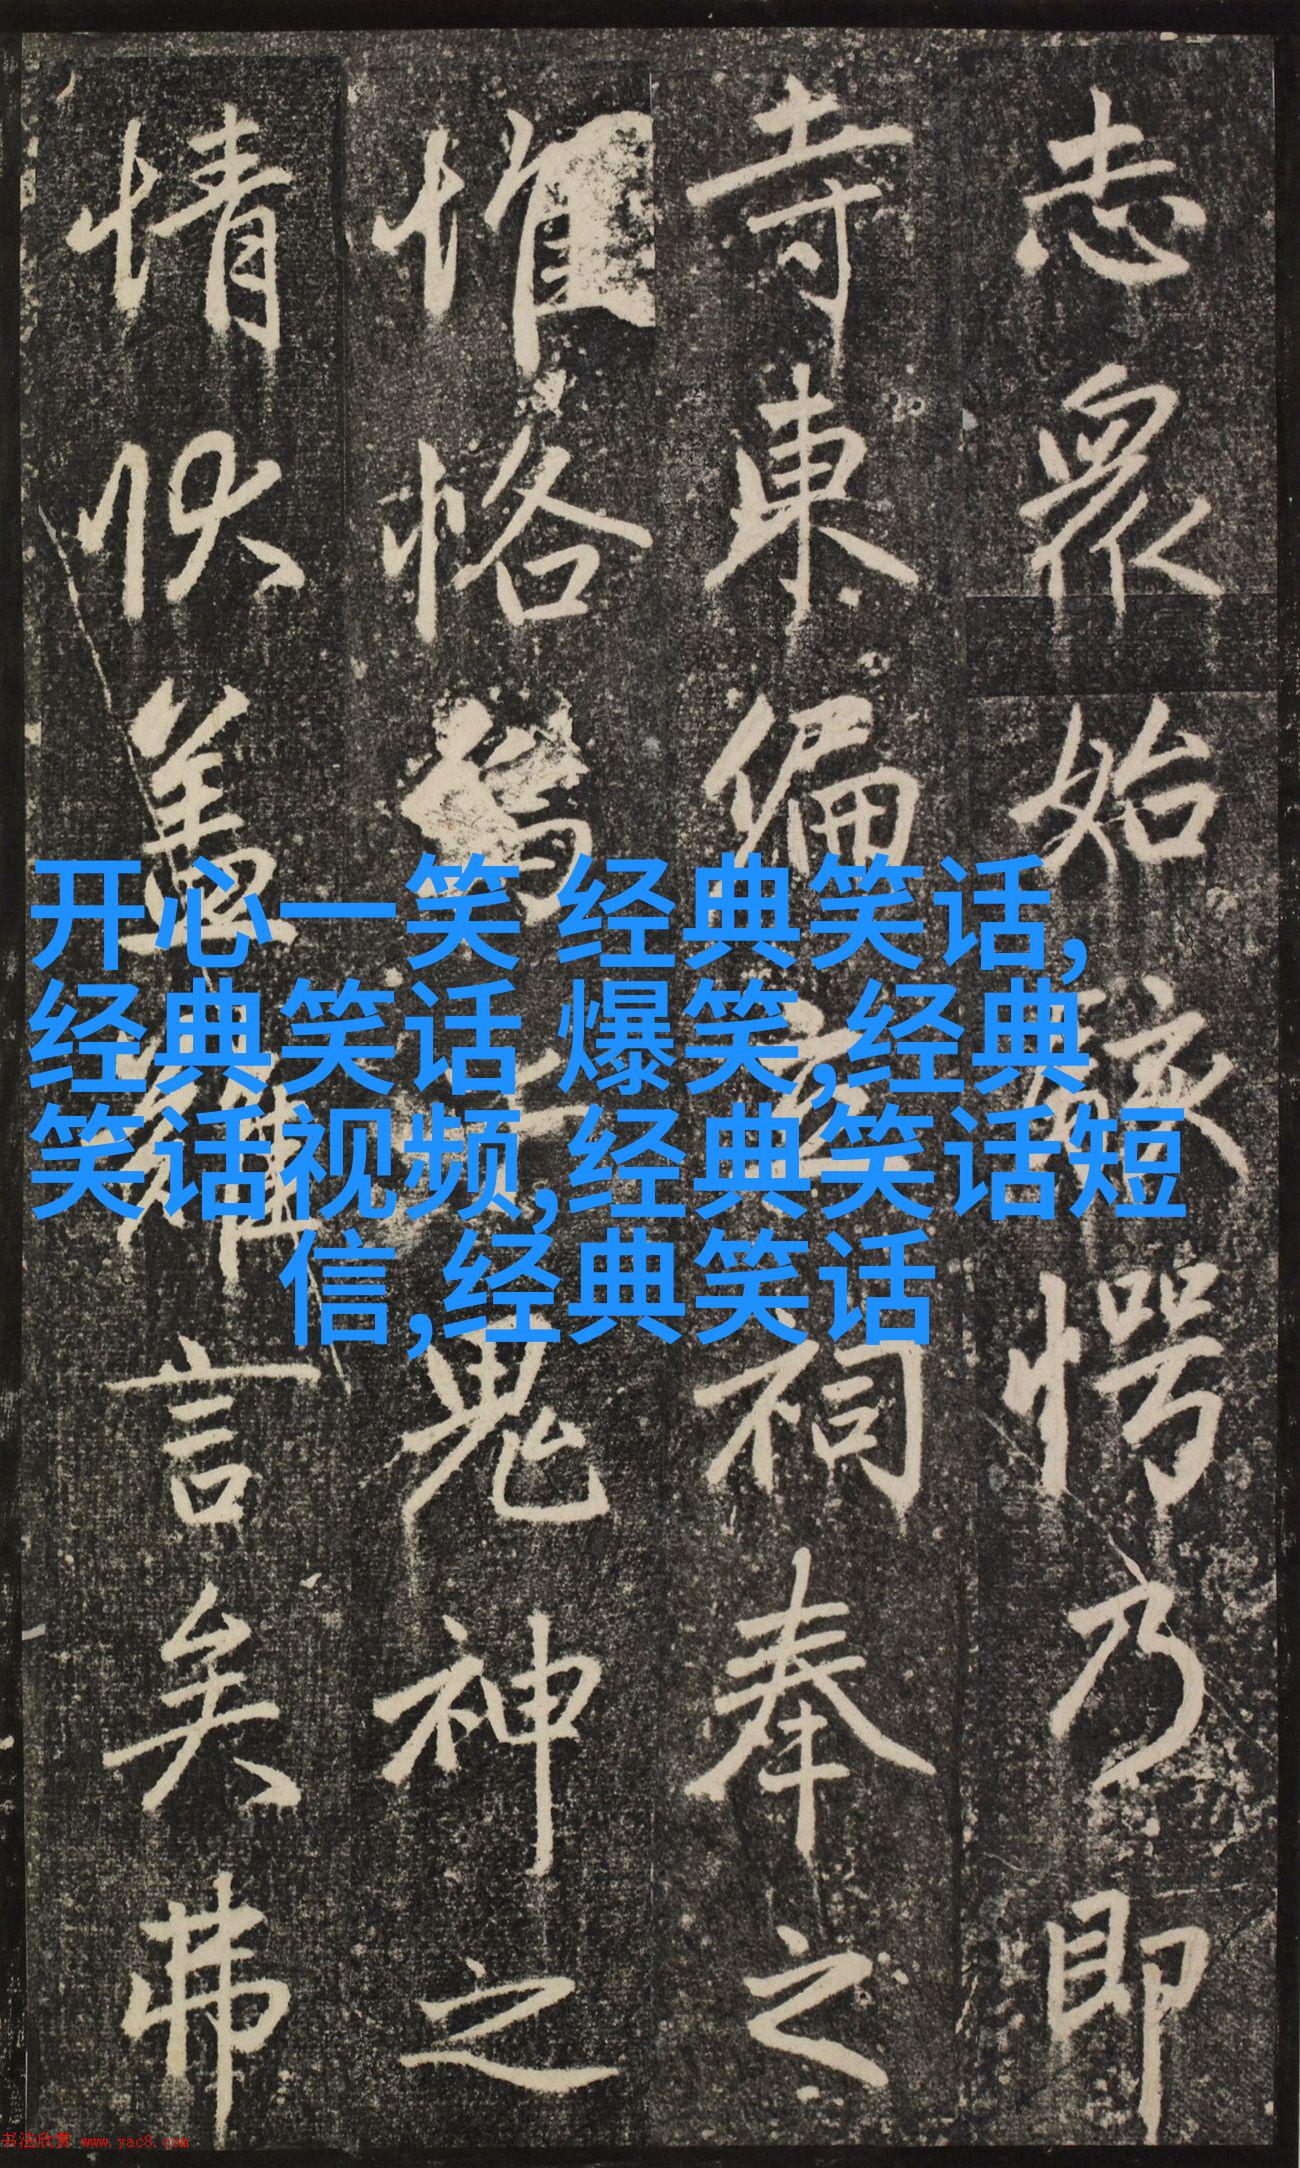 志衆始駭愕乃即
寺東偏祠奉之
惟恪鬼神之
情伏蓋難言矣弗
开心一笑 经典笑话,
经典笑话 爆笑,经典
笑话视频,经典笑话短
信,经典笑话
书法欣赏 www.yac8.com